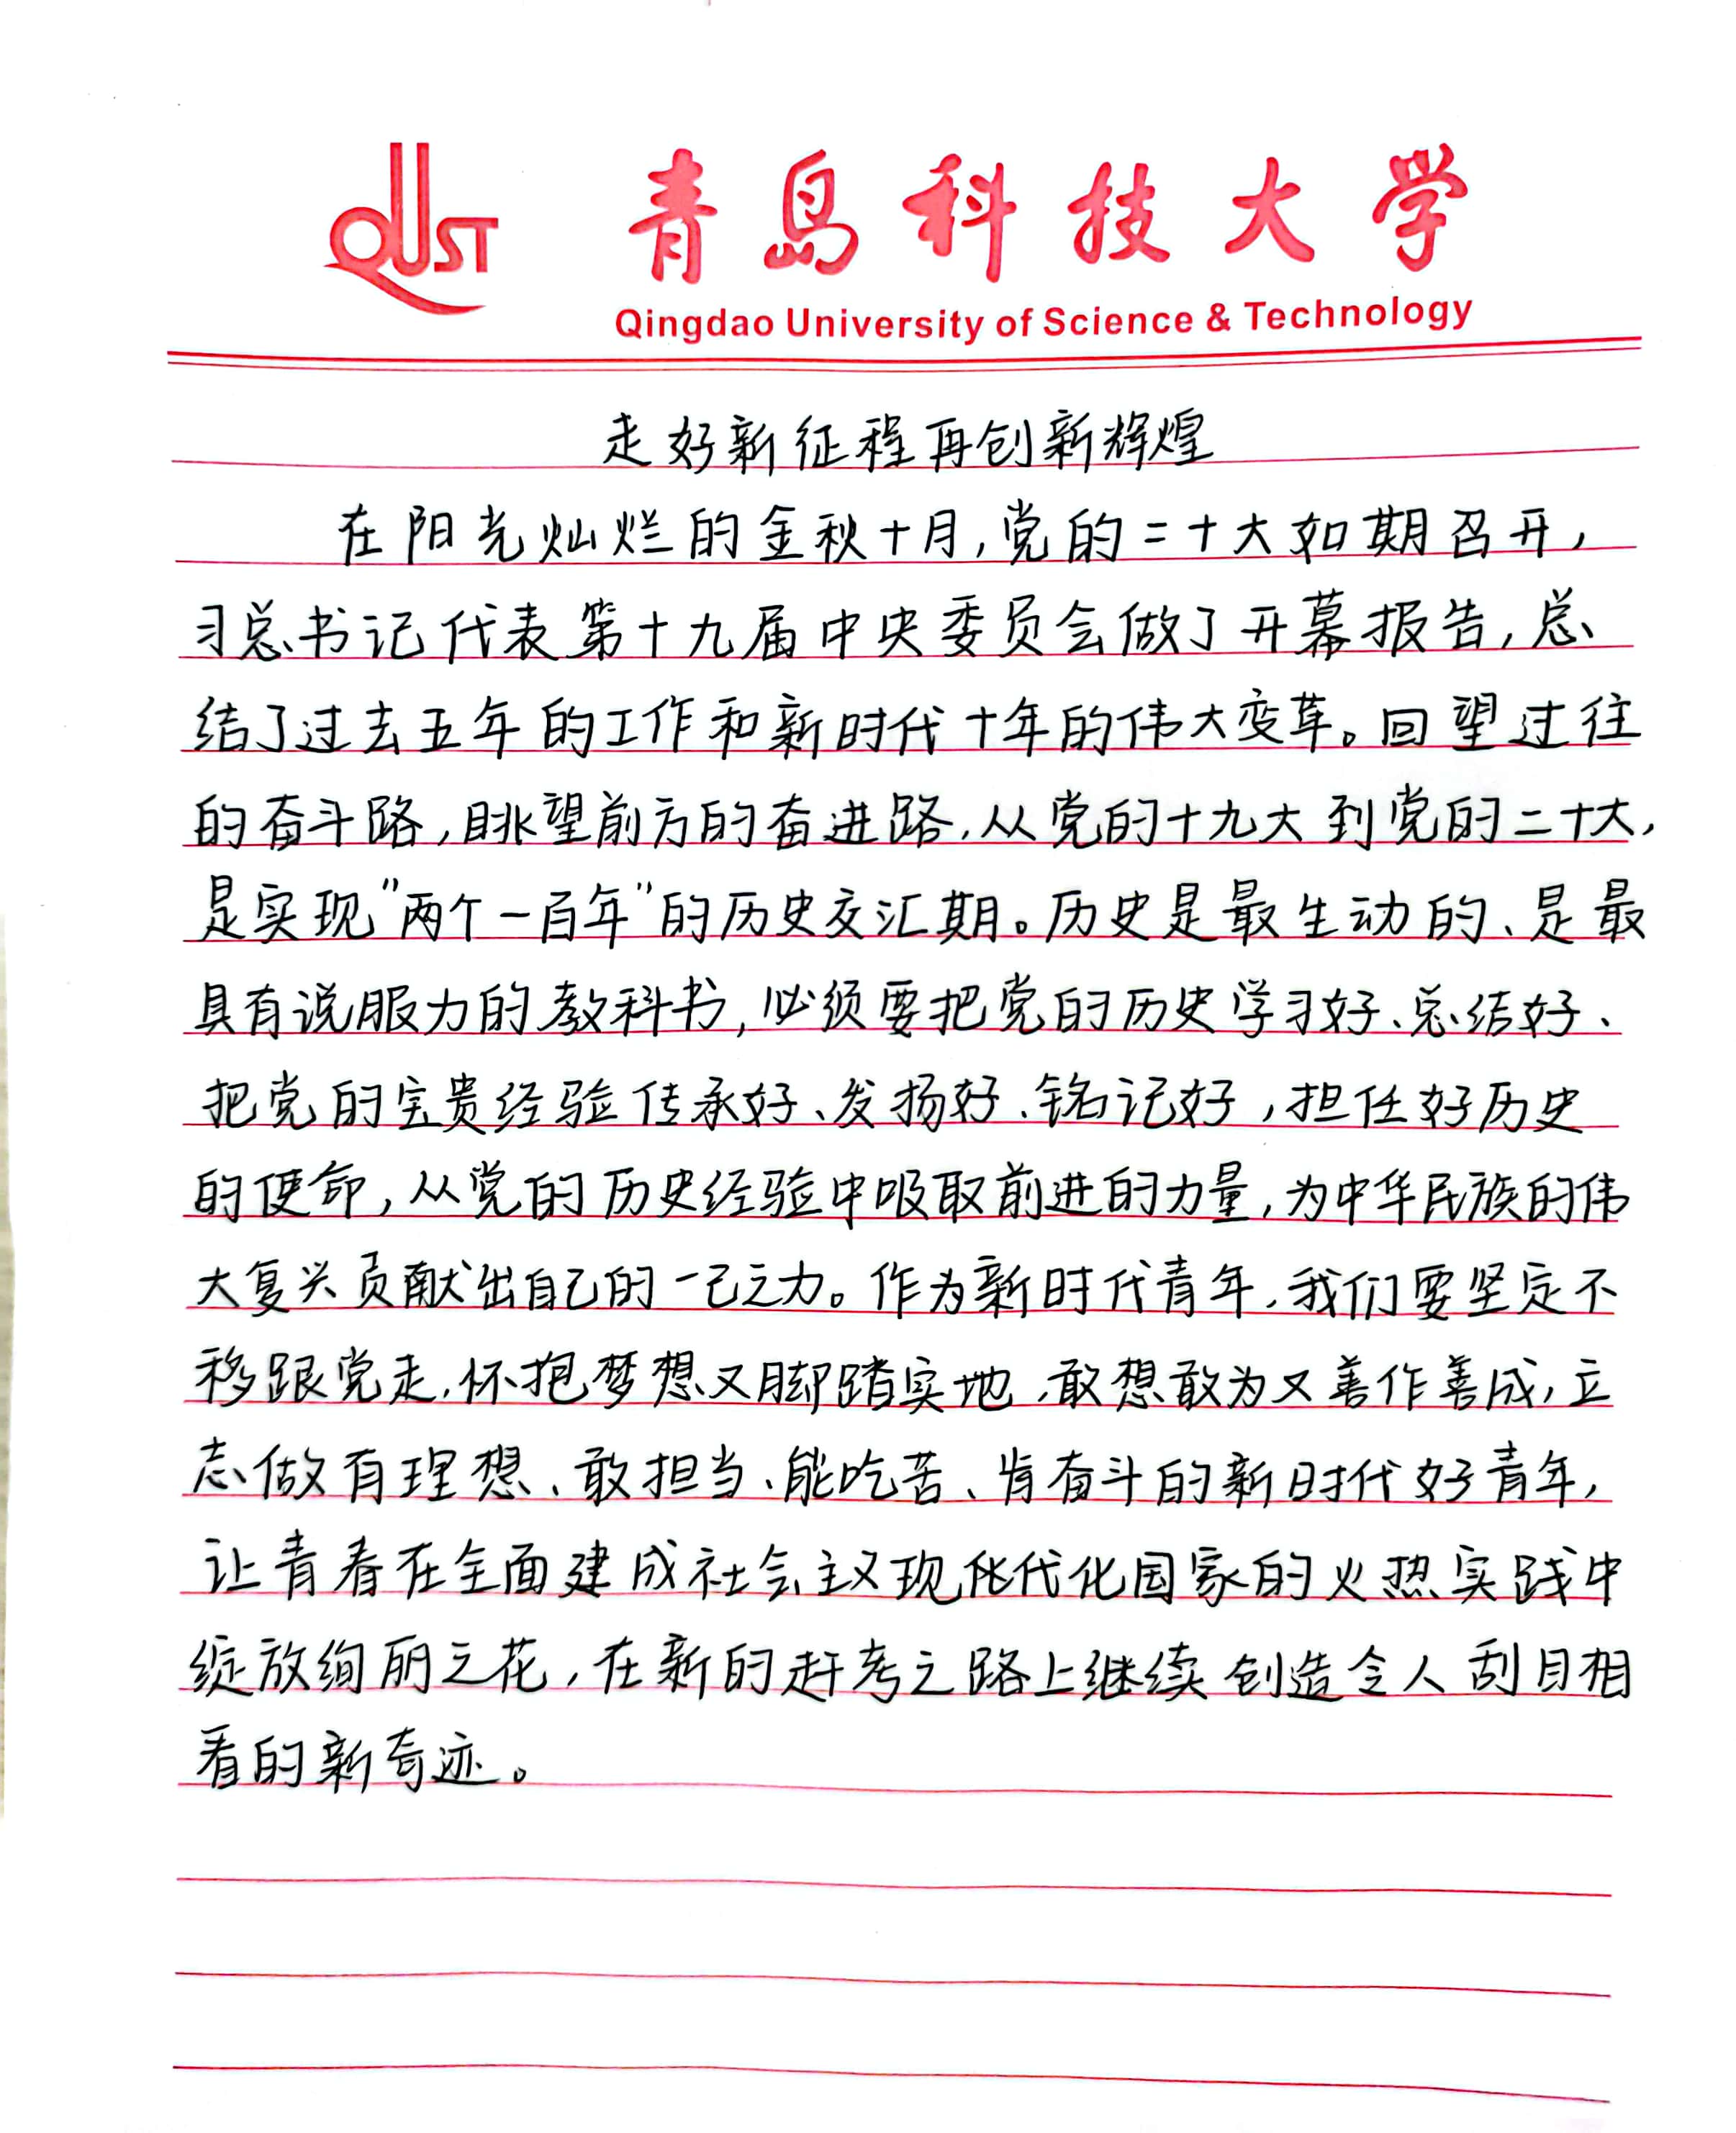 QUST 青岛科技大学
Qingdao University of Science & Technology
走好新征程再创新辉煌
在阳光灿烂的金秋十月,党的二十大如期召开,
习总书记代表第十九届中央委员会做了开幕报告,总
结了过去五年的工作和新时代十年的伟大变革。回望过往
的奋斗路,眺望前方的奋进路,从党的十九大到党的二十大,
是实现"两个一百年"的历史交汇期。历史是最生动的、是最
具有说服力的教科书,必须要把党的历史学习好、总结好、
把党的宝贵经验传承好、发扬好、铭记好,担任好历史
的使命,从党的历史经验中吸取前进的力量,为中华民族的伟
大复兴贡献出自己的一己之力。作为新时代青年,我们要坚定不
移跟党走,怀抱梦想又脚踏实地,敢想敢为又善作善成,立
志做有理想、敢担当、能吃苦、肯奋斗的新时代好青年,
让青春在全面建成社会主义现化代化国家的火热实践中
绽放绚丽之花,在新的赶考之路上继续创造令人刮目相
看的新奇迹。